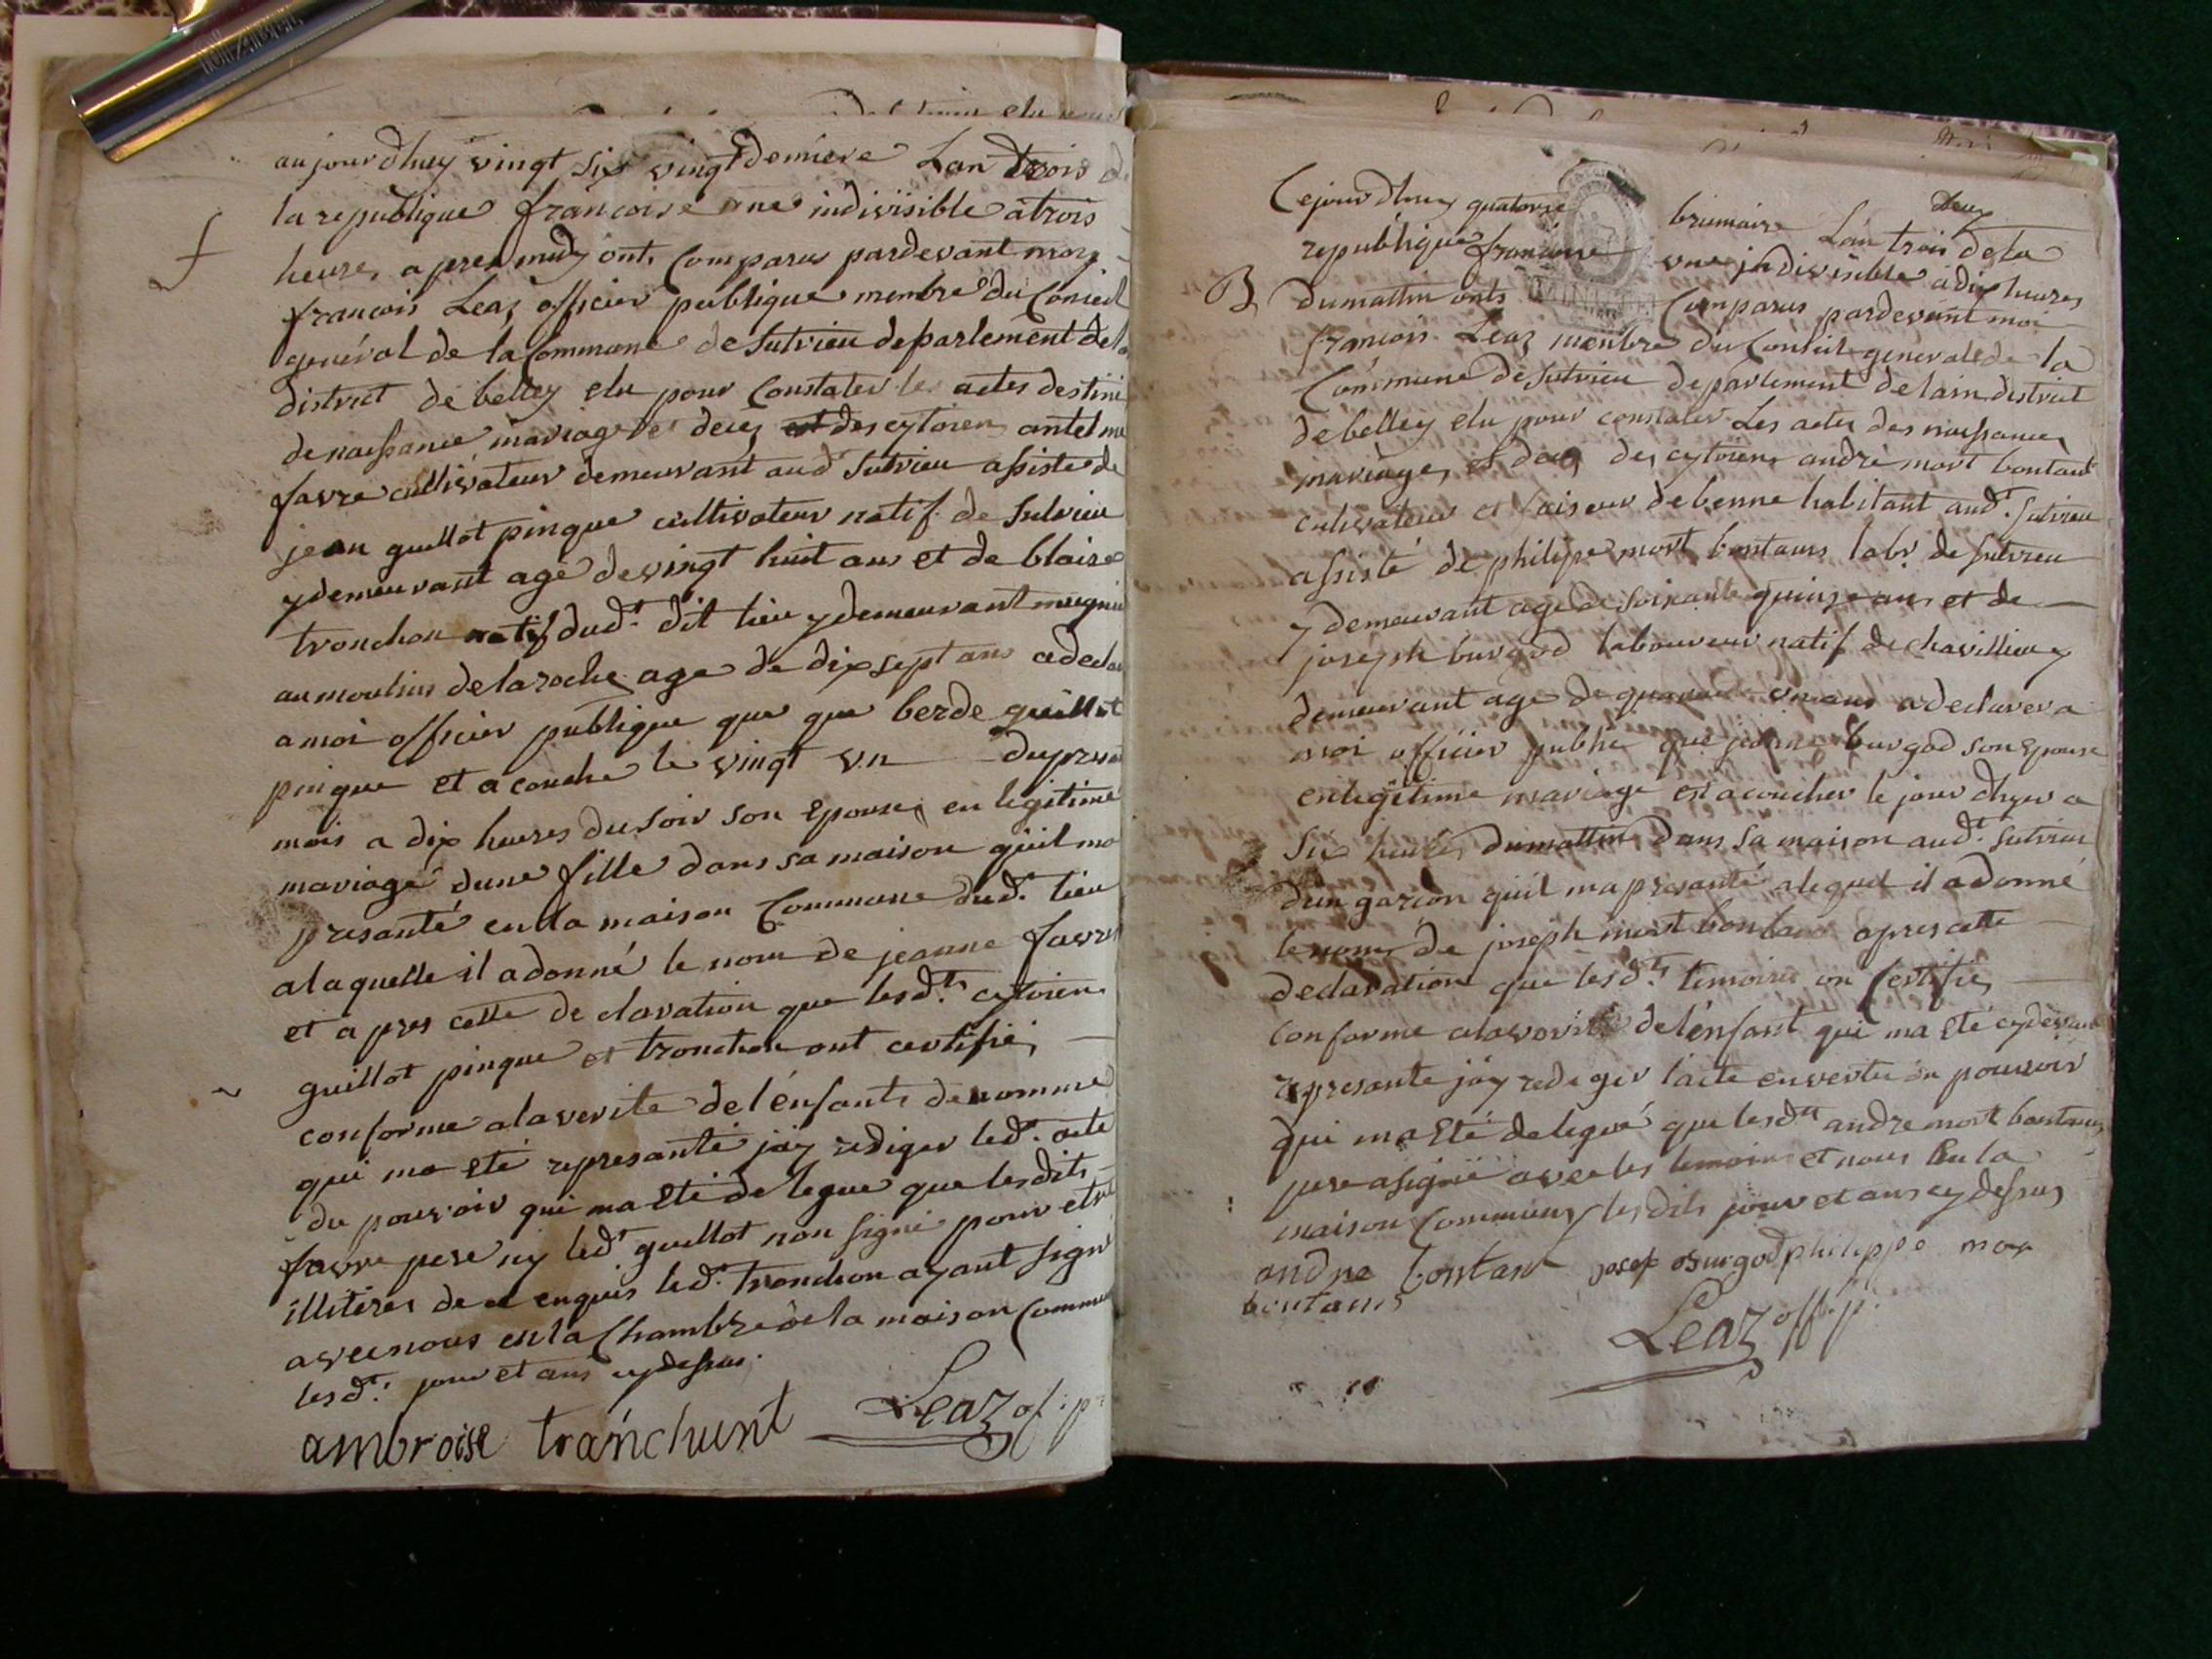 aujourdhuy vingt six vingtdemiere Lan trois
la republique francoise une indivisible a trois
heures apres mudy ont Comparus pardevant moy
francois Leaz officier publique membre du Conseil
général de la Commune de Sutrieu departement de
district de belley elu pour Constater les actes destiné
de naissance mariage et decez des cytoiens antelme
favre cultivateur demeurant aud Sutrieu assiste de
jean guillot pingue cultivateur natif de Sutrieu
y demeurant agé de vingt huit ans et de blaise
tronchon natif dud.t dit lieu y demeurant
au moulin de la roche age de dix sept ans a
a moi officier publique que que berde guillot
pingue et a couche le vingt un du
mois a dix heures du soir son epouse en legitime
mariage dune fille dans sa maison quil ma
presanté en la maison Commune dud.t lieu
a laquelle il a donné le nom de jeanne favre
et a pres cette declaration que lesd.ts cytoien
guillot pingue et tronchon ont certifié
conforme a la verite de l'énfants denomme
qui ma eté represanté j'ay rediger led.t acte
du pouvoir qui ma eté delegue que les dits
favre pere ny led.t guillot non signé pour etre
illiteres de ce enquis led.t tronchon ayant signé
avec nous en la Chambre de la maison Commune
lesd.t jour et ans cy dessus
ambroise tranchunt Leaz of: p:
deux
Cejourdhuy quatorze brumaire Lan trois de la
republique francoise une jndivisible a dix heures
B
du mattin onts Comparus pardevant moi
francois Leaz membre du Conseil general de la
Commune de Sutrieu departement de lain district
de belley elu pour constater Les actes des naissances
mariages et decez des cytoiens andré mort bontant
cultivateur et faiseur de benne habitant aud.t Sutrieu
assisté de philipe mort bontams labr. de Sutrieu
y demeurant age de soixante quinze ans et de
joseph burgod laboureur natif de chavillieu y
demeurant age de quarante un ans a declarer a
moi officier public que jeanne burgod son epouse
en legitime mariage est acoucher le jour dhyer a
Six heures du mattin dans sa maison aud.t Sutrieu
d'un garcon quil ma presanté alequel il a donné
le nom de joseph mort bontams apres cette
declaration que lesd.ts temoins on Certifie
conforme a la verité de lénfant qui ma eté cydevant
represante j'ay rediger l'acte en vertu du pouvoir
qui ma eté delegué que lesd.ts andre mort bontams
pere a signé avec les temoins et nous En la
maison Commune les dits jour et ans cy dessus
andre bontant josep Burgod philippe mor
bontams
Leaz off. p.